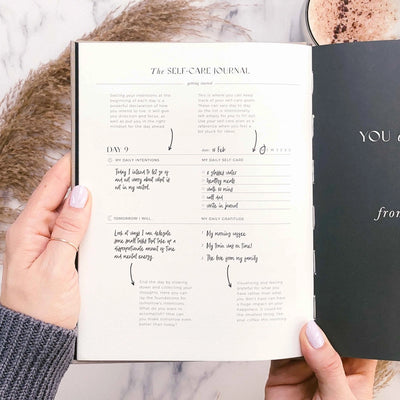 The SELF-CARE JOURNAL
getting started
Setting your intentions at the
beginning of each day is a
powerful declaration of how
you intend to live. It will give
you direction and focus, as
well as put you in the right
mindset for the day ahead
This is where you can keep
track of your self care goals.
Make sure to your day
intentionally
left empty for you to fill out.
Use your self care plan as a
reference when you feel a
bit stuck for ideas
DAY 9
date: 16 Feb
M T W T F S S
MY DAILY INTENTIONS
Today I intend to let go of
and not worry about what is
not in my control.
MY DAILY SELF CARE
8 glasses water
healthy meals
walk 30 mins
self
write in journal
TOMORROW I WILL
Look at ways I can delegate
some small tasks that take up a
disproportionate amount of time
and mental energy.
MY DAILY GRATITUDE
1 My morning coffee
2 My train was on time!
3 The love from my family
End the day by slowing
down and collecting your
thoughts. Here you can
lay the foundations for
tomorrow's intentions.
What do you want to
accomplish? How can
you make tomorrow even
better than today?
Visualising and feeling
grateful for what you
have rather than what
you don't have can have
a huge impact on your
happiness. It could be
the smallest thing, like
your coffee this morning
YOU
from